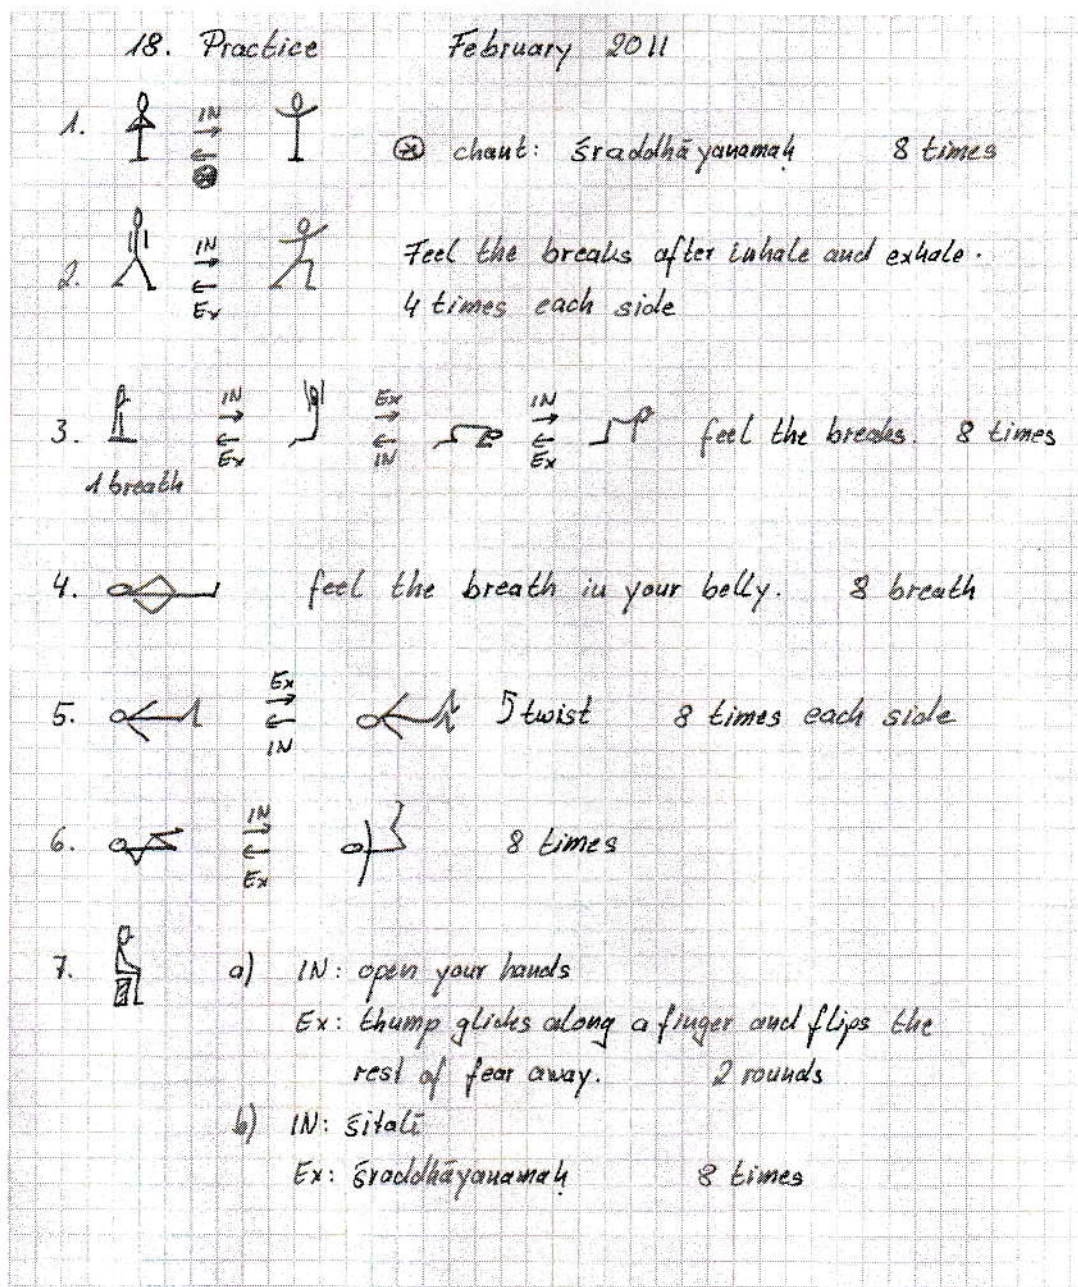 18. Practice February 2011
1. IN
⊛ chant: śraddhāyanamaḥ 8 times
2. IN
Ex
Feel the breaks after inhale and exhale.
4 times each side
3. IN Ex IN
Ex IN Ex
feel the breaks. 8 times
1 breath
4. feel the breath in your belly. 8 breath
5. Ex
IN
twist 8 times each side
6. IN
Ex
8 times
7. a) IN: open your hands
Ex: thump glides along a finger and flips the
rest of fear away. 2 rounds
b) IN: śitalī
Ex: śraddhāyanamaḥ 8 times